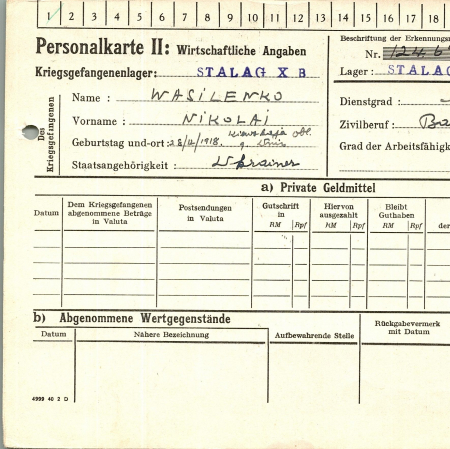 1 2 3 4 5 6 7 8 9 10 11 12 13 14 15 16 17 18
Personalkarte II: Wirtschaftliche Angaben
Kriegsgefangenenlager: STALAG X B
Des Kriegsgefangenen
Name: WASILENKO
Vorname: NIKOLAI
Geburtstag und-ort: 28/4/1918. obl.
Staatsangehörigkeit: Ukrainer
Beschriftung der Erkennungs
Nr.
Lager: STALAG
Dienstgrad:
Zivilberuf:
Grad der Arbeitsfähigk
a) Private Geldmittel
Datum
Dem Kriegsgefangenen abgenommene Beträge in Valuta
Postsendungen in Valuta
Gutschrift in
RM Rpf
Hiervon ausgezahlt
RM Rpf
Bleibt Guthaben
RM Rpf
der
b) Abgenommene Wertgegenstände
Datum
Nähere Bezeichnung
Aufbewahrende Stelle
Rückgabevermerk mit Datum
4999 40 2 D